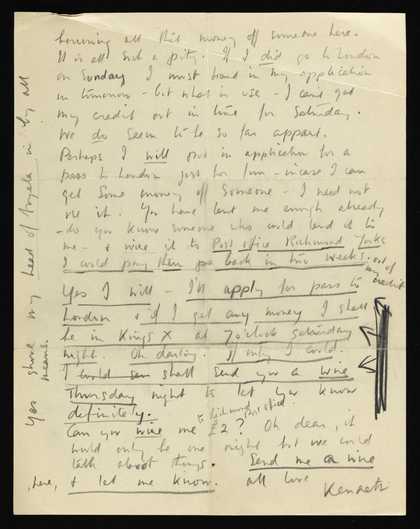 borrowing all this money off someone here.
It is all such a pity. If I did go to London
on Sunday I must hand in my application
in tomorrow - but what is use - I cant get
my credit out in time for Saturday.
We do seem to be so far appart.
Perhaps I will put in application for a
pass to London just for fun - incase I can
get some money off someone - I need not
use it. You have lent me enough already
- do you know someone who could lend it to
me - & wire it to Post office Richmond Yorks
I could pay them back in two weeks out of
my credit
Yes I will - I'll apply for pass to
London & if I get any money I shall
be in Kings X at 7 o'clock saturday
night. Oh darling. If only I could.
I shall send you a wire
Thursday night to let you know
definitely.
to Richmond Post office
Can you wire me £2? Oh dear, it
would only be one night but we could
talk about things. Send me a wire
here, & let me know. all love
Kenneth
Yes shove my head of Angela in by all
means.